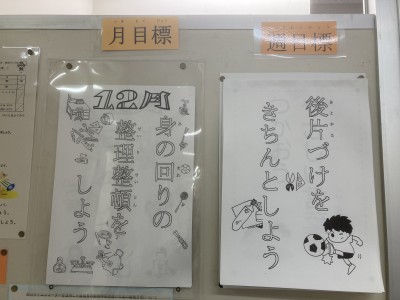 月目標
12月
身の回りの
整理整頓を
しよう
週目標
後片づけを
きちんとしよう